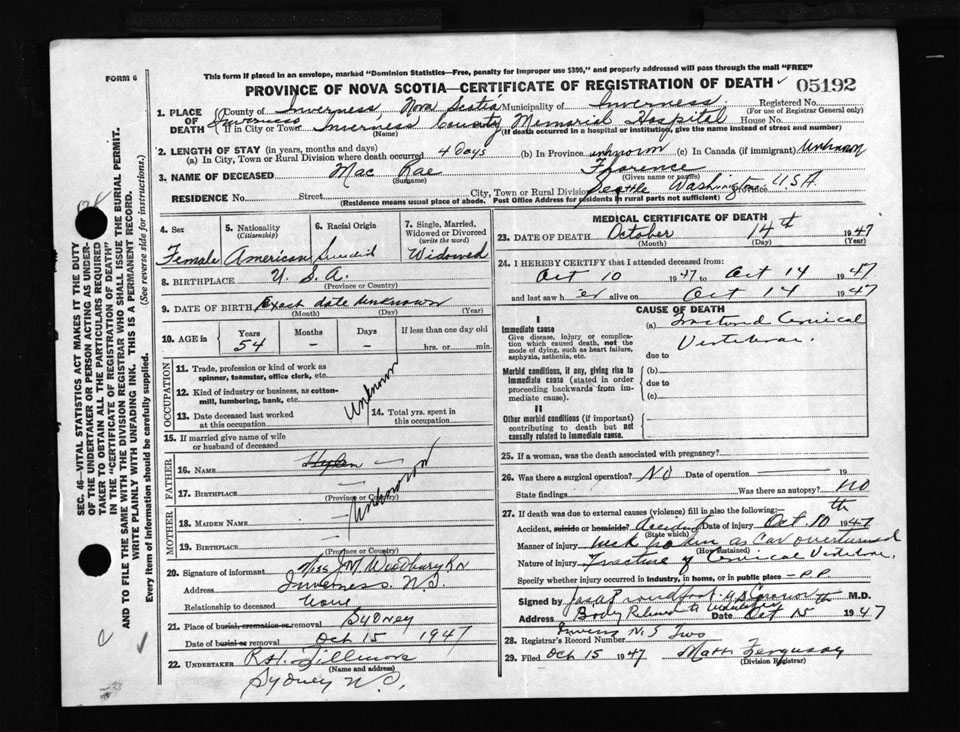 FORM 6
This form if placed in an envelope, marked "Dominion Statistics—Free, penalty for improper use $300," and properly addressed will pass through the mail "FREE"
PROVINCE OF NOVA SCOTIA—CERTIFICATE OF REGISTRATION OF DEATH 05192
1. PLACE OF DEATH
County of Inverness, Nova Scotia Municipality of Inverness Registered No.
(For use of Registrar General only)
If in City or Town Inverness County Memorial Hospital House No.
(Name) (If death occurred in a hospital or institution, give the name instead of street and number)
2. LENGTH OF STAY (in years, months and days)
(a) In City, Town or Rural Division where death occurred 4 Days (b) In Province unknown (c) In Canada (if immigrant) Unknown
3. NAME OF DECEASED Mac Rae Florence
(Surname) (Given name or names)
RESIDENCE No. Street City, Town or Rural Division Seattle Washington U.S.A.
(Residence means usual place of abode. Post Office Address for residents in rural parts not sufficient)
4. Sex
Female
5. Nationality
(Citizenship)
American
6. Racial Origin
7. Single, Married, Widowed or Divorced
(write the word)
Widowed
8. BIRTHPLACE U.S.A.
(Province or Country)
9. DATE OF BIRTH Exact date unknown
(Month) (Day) (Year)
10. AGE in
Years Months Days If less than one day old
54 – – hrs. or min.
OCCUPATION
11. Trade, profession or kind of work as spinner, teamster, office clerk, etc.
12. Kind of industry or business, as cotton-mill, lumbering, bank, etc.
13. Date deceased last worked at this occupation
14. Total yrs. spent in this occupation
Unknown
15. If married give name of wife or husband of deceased
FATHER
16. NAME
17. BIRTHPLACE
(Province or County)
MOTHER
18. MAIDEN NAME
19. BIRTHPLACE
(Province or Country)
Unknown
20. Signature of informant Miss J.M. Woodbury RN
Address Inverness N.S.
Relationship to deceased None
21. Place of burial, cremation or removal Sydney
Date of burial or removal Oct 15 1947
22. UNDERTAKER
(Name and address)
Sydney N.S.
MEDICAL CERTIFICATE OF DEATH
23. DATE OF DEATH October 14th 1947
(Month) (Day) (Year)
24. I HEREBY CERTIFY that I attended deceased from:
Oct 10 1947 to Oct 14 1947
and last saw her alive on Oct 14 1947
CAUSE OF DEATH
I
Immediate cause
Give disease, injury or complication which caused death, not the mode of dying, such as heart failure, asphyxia, asthenia, etc.
(a) Fractured Cervical
Vertebrae.
due to
Morbid conditions, if any, giving rise to immediate cause (stated in order proceeding backwards from immediate cause).
(b)
due to
(c)
II
Other morbid conditions (if important) contributing to death but not causally related to immediate cause.
25. If a woman, was the death associated with pregnancy?
26. Was there a surgical operation? No Date of operation 19
State findings Was there an autopsy? No
27. If death was due to external causes (violence) fill in also the following:—
Accident, suicide or homicide? Accident Date of injury Oct. 10th 1947
(State which)
Manner of injury as Car overturned
(How sustained)
Nature of injury Fracture of Cervical Vertebrae
Specify whether injury occurred in industry, in home, or in public place – P.P.
Signed by M.D.
Address Oct 15 1947
28. Registrar's Record Number
29. Filed Oct 15 1947
(Division Registrar)
SEC. 46—VITAL STATISTICS ACT MAKES IT THE DUTY
OF THE UNDERTAKER OR PERSON ACTING AS UNDERTAKER TO OBTAIN ALL THE PARTICULARS REQUIRED
IN THE "CERTIFICATE OF REGISTRATION OF DEATH"
AND TO FILE THE SAME WITH THE DIVISION REGISTRAR WHO SHALL ISSUE THE BURIAL PERMIT.
WRITE PLAINLY WITH UNFADING INK. THIS IS A PERMANENT RECORD.
Every item of information should be carefully supplied. (See reverse side for instructions.)